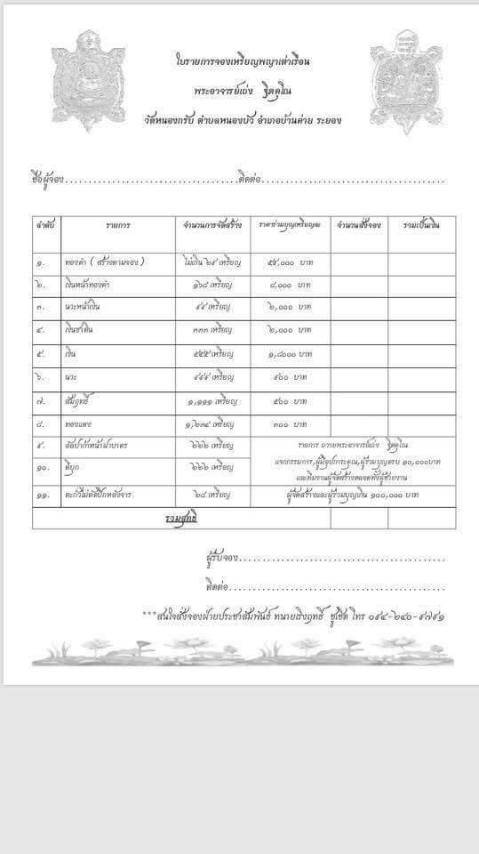 ใบรายการจองเหรียญพญาเต่าเรือน
พระอาจารย์เก่ง ฐิตคุโณ
วัดหนองกรับ ตำบลหนองบัว อำเภอบ้านค่าย ระยอง
ชื่อผู้จอง ติดต่อ
ลำดับ รายการ จำนวนการจัดสร้าง ราคาร่วมบุญเหรียญละ จำนวนสั่งจอง รวมเป็นเงิน
๑. ทองคำ ( สร้างตามจอง ) ไม่เกิน เหรียญ บาท
๒. เงินหน้าทองคำ ๑๖๘ เหรียญ ๘,๐๐๐ บาท
๓. นวะหน้าเงิน เหรียญ ๒,๐๐๐ บาท
๔. ๓๓๓ เหรียญ ๒,๐๐๐ บาท
๕. เงิน ๕๕๕ เหรียญ ๑,๘๐๐ บาท
๖. นวะ เหรียญ บาท
๗. สัมฤทธิ์ ๑,๑๑๑ เหรียญ ๕๖๐ บาท
๘. ทองแดง เหรียญ ๓๐๐ บาท
๙. อัลปาก้าหน้าฝาบาตร ๒๒๒ เหรียญ รายการ ถวายพระอาจารย์เก่ง ฐิตคุโณ
๑๐. ดีบุก ๒๒๒ เหรียญ แจกกรรมการ,ผู้มีอุปการะคุณ,ผู้ร่วมบุญครบ ๑๐,๐๐๐บาท
๑๑. ตะกั่วไม่ตัดปีกหลังจาร ๒๘ เหรียญ ผู้จัดสร้างและผู้ร่วมบุญเกิน ๑๐๐,๐๐๐ บาท
รวมสุทธิ
ผู้รับจอง
ติดต่อ
***สนใจสั่งจองฝ่ายประชาสัมพันธ์ ทนายเริงฤทธิ์ ชูเชิด โทร